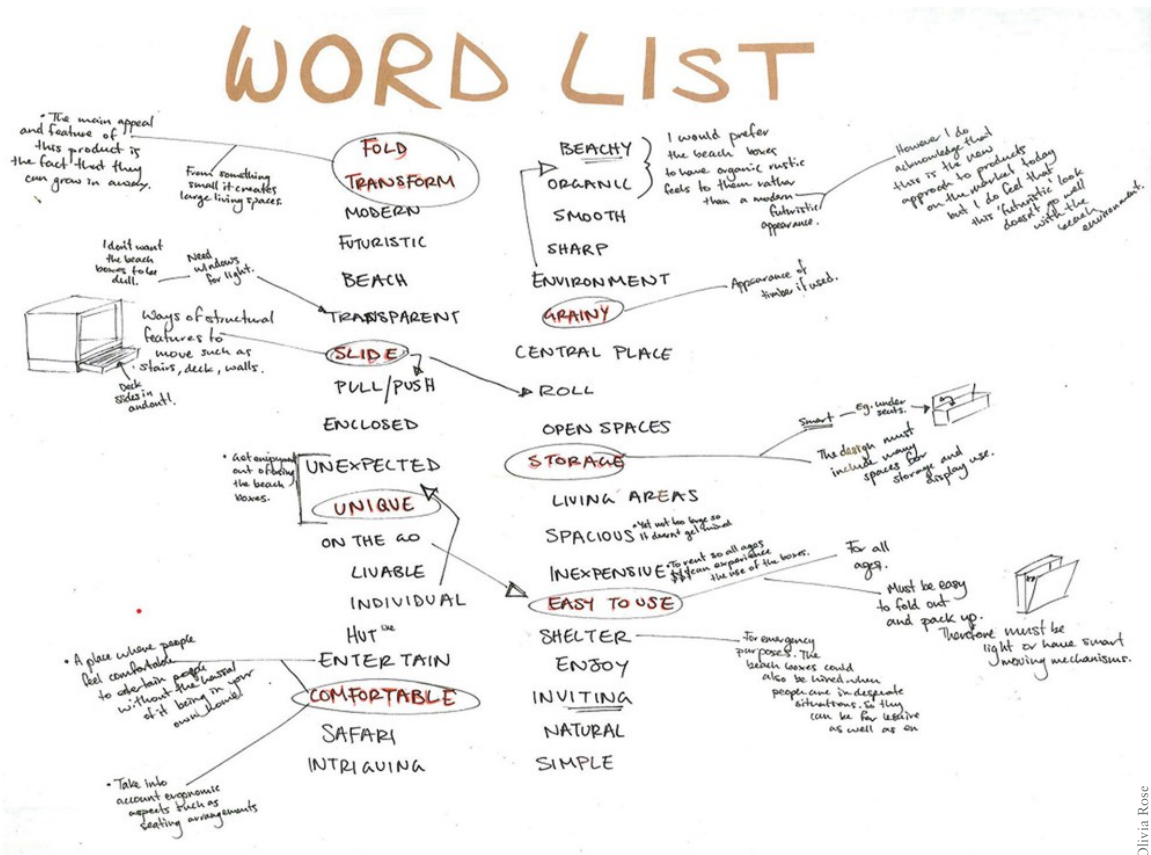 WORD LIST
• The main appeal
and feature of
this product is
the fact that they
can grow in away.
From something
small it creates
large living spaces.
FOLD
TRANSFORM
MODERN
FUTURISTIC
BEACH
TRANSPARENT
SLIDE
PULL/PUSH
ENCLOSED
UNEXPECTED
UNIQUE
ON THE GO
LIVABLE
INDIVIDUAL
HUT like
ENTERTAIN
COMFORTABLE
SAFARI
INTRIGUING
I don't want
the beach
boxes to be
dull.
Need
windows
for light.
Ways of structural
features to
move such as
stairs, deck, walls.
Deck
slides in
and out!
• Get enjoyment
out of using
the beach
boxes.
• A place where people
feel comfortable
to entertain people
without the hassal
of it being in your
own home!
• Take into
account ergonomic
aspects such as
seating arrangements
BEACHY
ORGANIC
SMOOTH
SHARP
ENVIRONMENT
GRAINY
CENTRAL PLACE
ROLL
OPEN SPACES
STORAGE
LIVING AREAS
SPACIOUS • Yet not too large so
it doesn't get
INEXPENSIVE • To rent so all ages
$$$ can experience
the use of the boxes.
EASY TO USE
SHELTER
ENJOY
INVITING
NATURAL
SIMPLE
I would prefer
the beach boxes
to have organic rustic
feels to them rather
than a modern
futuristic
appearance.
However I do
acknowledge that
this is the new
approach to products
on the market today
but I do feel that
this 'futuristic look
doesn't go well
with the
beach
environment.
Appearance of
timber if used.
Smart — Eg. under
seats.
The design must
include many
spaces for
storage and
display use.
For all
ages.
Must be easy
to fold out
and pack up.
Therefore must be
light or have smart
moving mechanisms.
For emergency
purposes. The
beach boxes could
also be hired when
people are in desperate
situations. So they
can be for leisure
as well as on
Olivia Rose